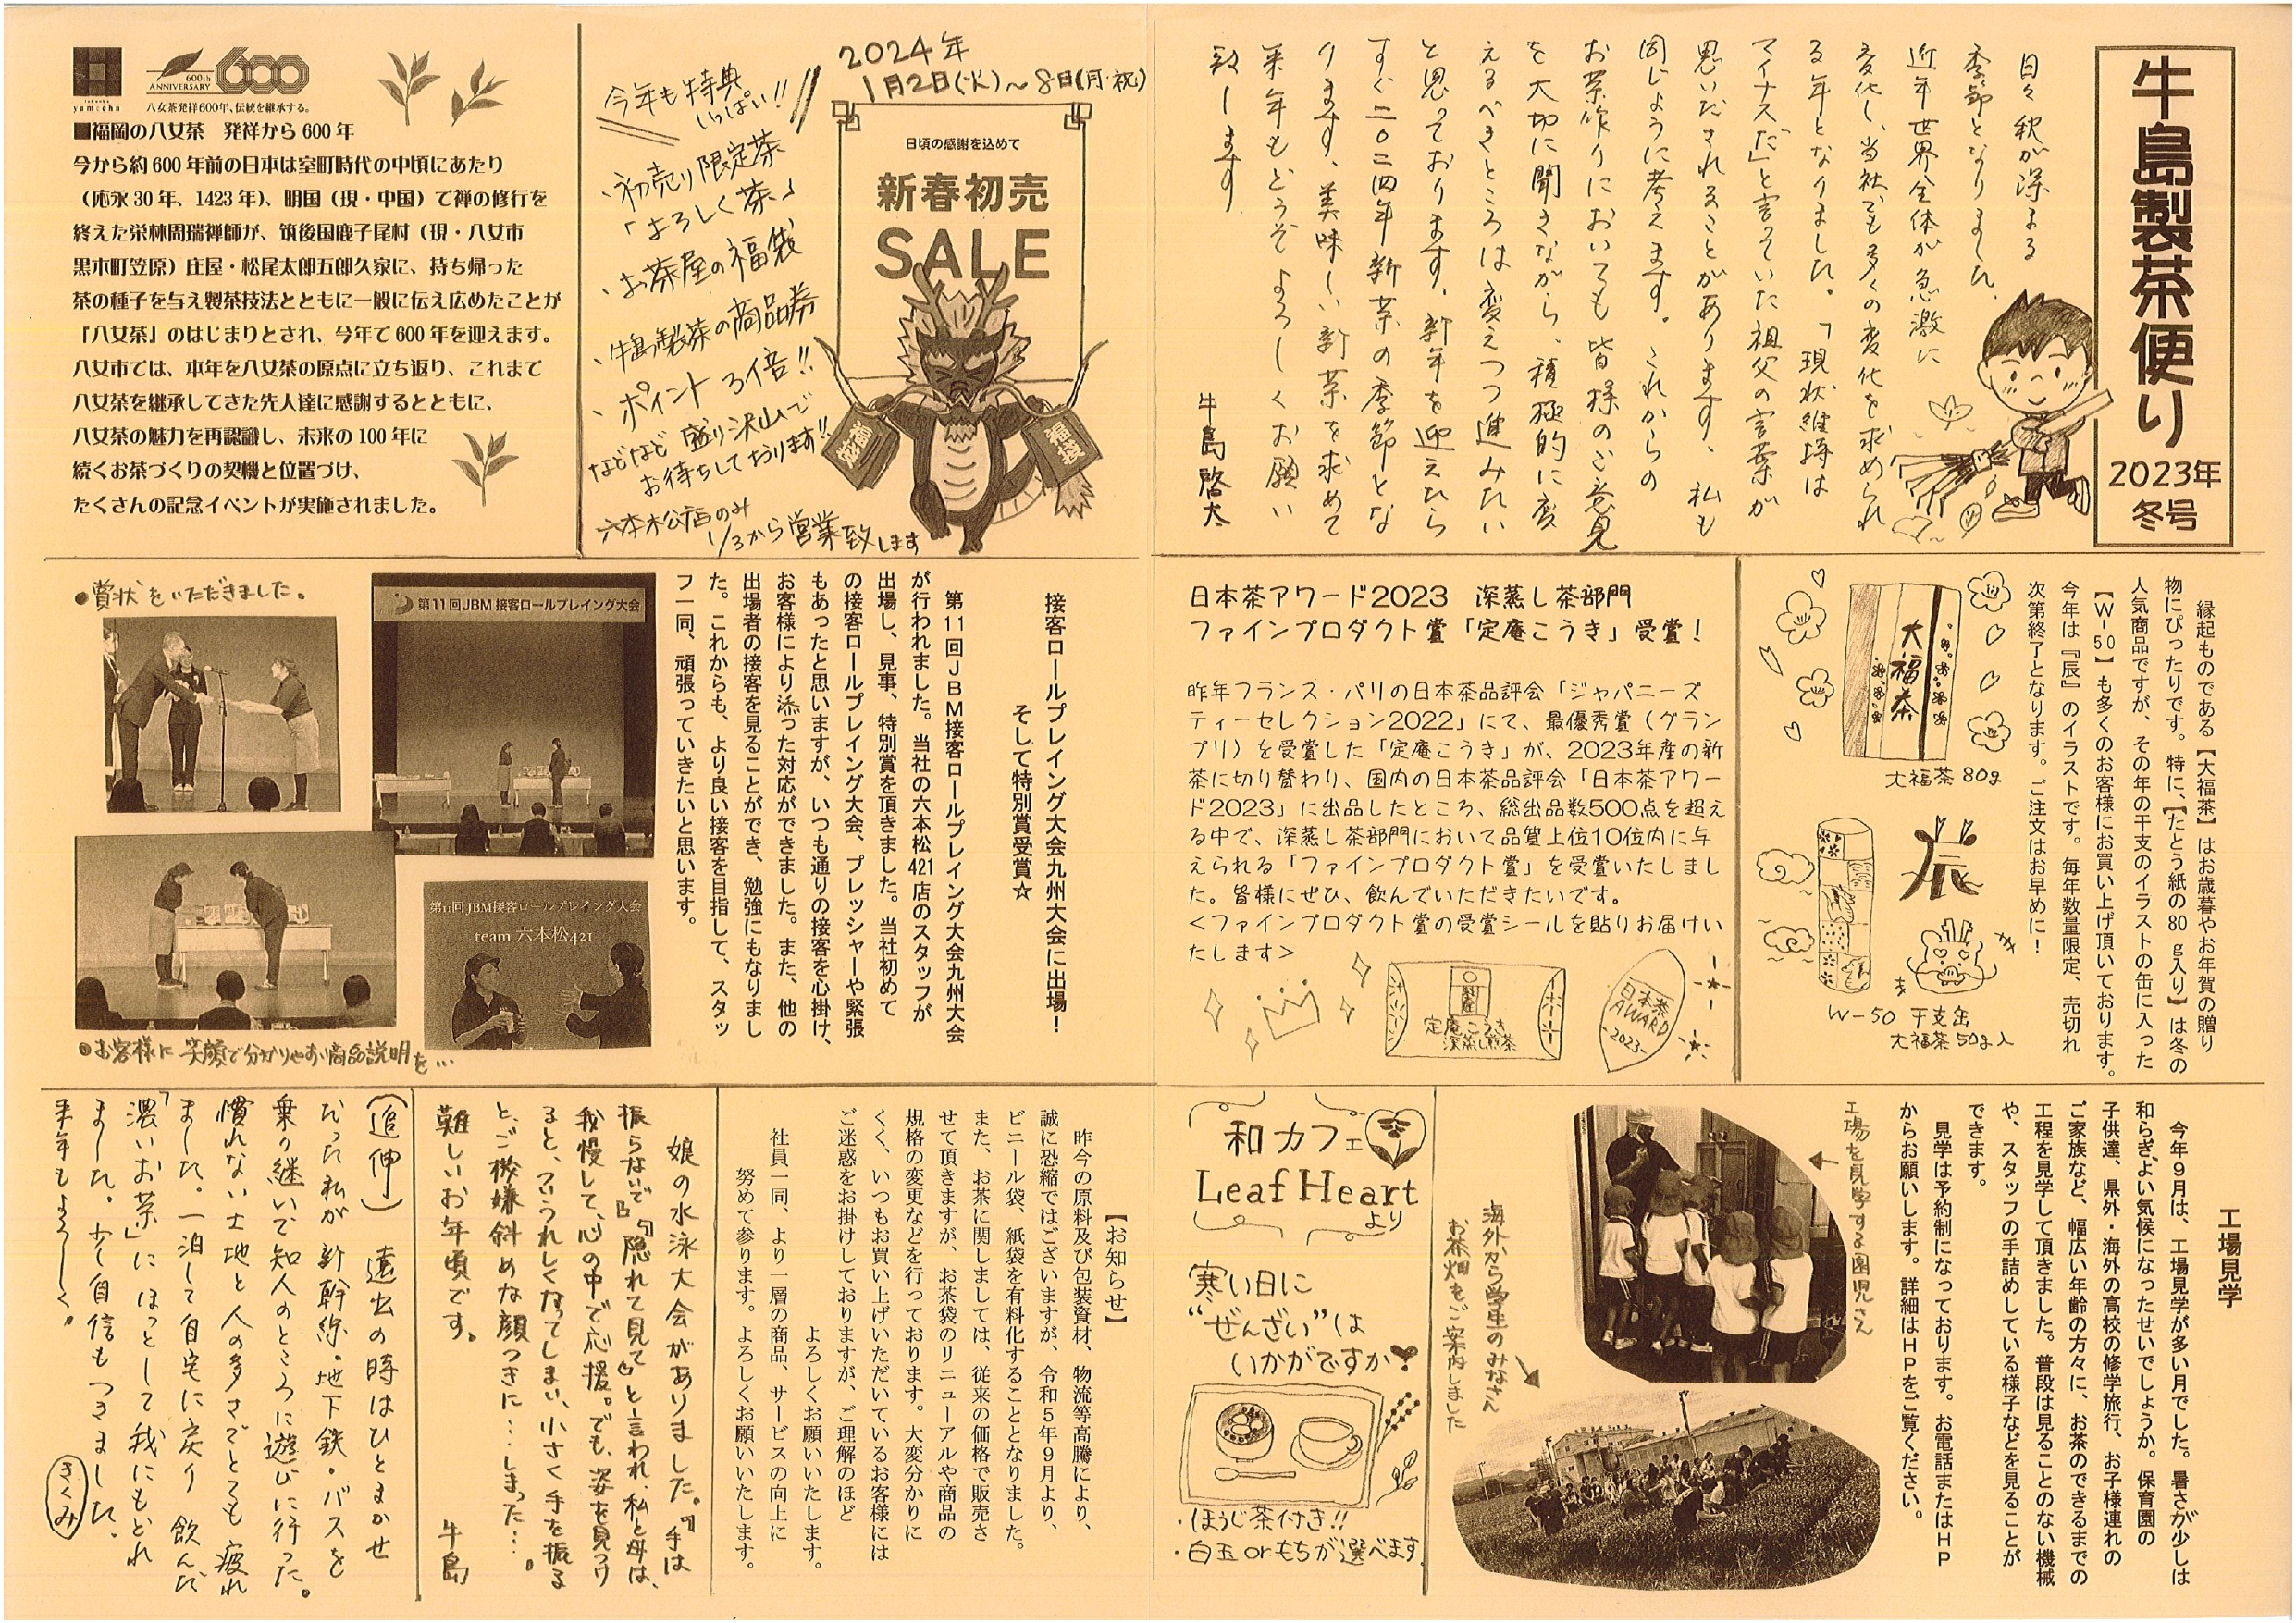 牛島製茶便り
2023年
冬号
日々秋が深まる
季節となりました。
近年世界全体が急激に
変化し、当社でも多くの変化を求められ
る年となりました。「現状維持は
マイナスだ」と言っていた祖父の言葉が
思いだされることがあります、私も
同じように考えます。これからの
お茶作りにおいても皆様のご意見
を大切に聞きながら、積極的に変
えるべきところは変えつつ進みたい
と思っております。新年を迎えたら
すぐ二〇二四年新茶の季節とな
ります、美味しい新茶を求めて
来年もどうぞよろしくお願い
致します。
牛島啓太
2024年
1月2日(火)~8日(月・祝)
今年も特典
いっぱい!!
・初売り限定茶
「よろしく茶」
・お茶屋の福袋
・牛島製茶の商品券
・ポイント3倍!!
などなど盛り沢山で
お待ちしております!!
六本松店のみ
1/3から営業致します
日頃の感謝を込めて
新春初売
SALE
福袋
fukuoka
yamecha
600th
ANNIVERSARY
600
八女茶発祥600年、伝統を継承する。
■福岡の八女茶 発祥から600年
今から約600年前の日本は室町時代の中頃にあたり
(応永30年、1423年)、明国(現・中国)で禅の修行を
終えた栄林周瑞禅師が、筑後国鹿子尾村(現・八女市
黒木町笠原)庄屋・松尾太郎五郎久家に、持ち帰った
茶の種子を与え製茶技法とともに一般に伝え広めたことが
「八女茶」のはじまりとされ、今年で600年を迎えます。
八女市では、本年を八女茶の原点に立ち返り、これまで
八女茶を継承してきた先人達に感謝するとともに、
八女茶の魅力を再認識し、未来の100年に
続くお茶づくりの契機と位置づけ、
たくさんの記念イベントが実施されました。
縁起ものである【大福茶】はお歳暮やお年賀の贈り
物にぴったりです。特に、【たとう紙の80g入り】は冬の
人気商品ですが、その年の干支のイラストの缶に入った
【W-50】も多くのお客様にお買い上げ頂いております。
今年は『辰』のイラストです。毎年数量限定、売切れ
次第終了となります。ご注文はお早めに!
大福茶
大福茶 80g
辰
W-50 干支缶
大福茶50g入
日本茶アワード2023 深蒸し茶部門
ファインプロダクト賞「定庵こうき」受賞!
昨年フランス・パリの日本茶品評会「ジャパニーズ
ティーセレクション2022」にて、最優秀賞(グラン
プリ)を受賞した「定庵こうき」が、2023年産の新
茶に切り替わり、国内の日本茶品評会「日本茶アワー
ド2023」に出品したところ、総出品数500点を超え
る中で、深蒸し茶部門において品質上位10位内に与
えられる「ファインプロダクト賞」を受賞いたしまし
た。皆様にぜひ、飲んでいただきたいです。
<ファインプロダクト賞の受賞シールを貼りお届けい
たします>
定庵こうき
深蒸し煎茶
日本茶
AWARD
-2023-
接客ロールプレイング大会九州大会に出場!
そして特別賞受賞☆
第11回JBM接客ロールプレイング大会九州大会
が行われました。当社の六本松421店のスタッフが
出場し、見事、特別賞を頂きました。当社初めて
の接客ロールプレイング大会、プレッシャーや緊張
もあったと思いますが、いつも通りの接客を心掛け、
お客様により添った対応ができました。また、他の
出場者の接客を見ることができ、勉強にもなりまし
た。これからも、より良い接客を目指して、スタッ
フ一同、頑張っていきたいと思います。
●賞状をいただきました。
第11回JBM接客ロールプレイング大会
第11回JBM接客ロールプレイング大会
team 六本松421
●お客様に笑顔で分かりやすい商品説明を…
工場見学
今年9月は、工場見学が多い月でした。暑さが少しは
和らぎ、よい気候になったせいでしょうか。保育園の
子供達、県外・海外の高校の修学旅行、お子様連れの
ご家族など、幅広い年齢の方々に、お茶のできるまでの
工程を見学して頂きました。普段は見ることのない機械
や、スタッフの手詰めしている様子などを見ることが
できます。
見学は予約制になっております。お電話またはHP
からお願いします。詳細はHPをご覧ください。
工場を見学する園児さん
海外から学生のみなさん
お茶畑をご案内しました
和カフェ
Leaf Heart
より
寒い日に
“ぜんざい”は
いかがですか
・ほうじ茶付き!!
・白玉orもちが選べます
【お知らせ】
昨今の原料及び包装資材、物流等高騰により、
誠に恐縮ではございますが、令和5年9月より、
ビニール袋、紙袋を有料化することとなりました。
また、お茶に関しましては、従来の価格で販売さ
せて頂きますが、お茶袋のリニューアルや商品の
規格の変更などを行っております。大変分かりに
くく、いつもお買い上げいただいているお客様には
ご迷惑をお掛けしておりますが、ご理解のほど
よろしくお願いいたします。
社員一同、より一層の商品、サービスの向上に
努めて参ります。よろしくお願いいたします。
娘の水泳大会がありました。『手は
振らないで』『隠れて見て』と言われ、私と母は、
我慢して、心の中で応援。でも、姿を見つけ
ると、ついうれしくなってしまい、小さく手を振る
と、ご機嫌斜めな顔つきに…しまった…。
難しいお年頃です。
牛島
(追伸) 遠出の時はひとまかせ
だった私が新幹線・地下鉄・バスを
乗り継いで知人のところに遊びに行った。
慣れない土地と人の多さでとても疲れ
ました。一泊して自宅に戻り飲んだ
「濃いお茶」にほっとして我にもどれ
ました。少し自信もつきました。
来年もよろしく。
きくみ